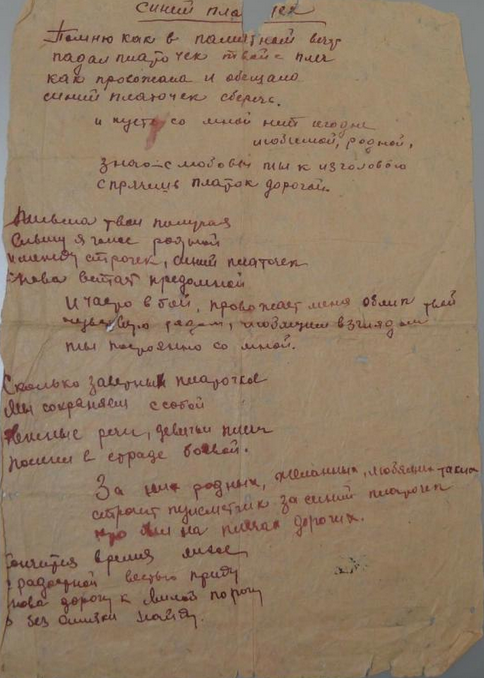 Синий пла ек
Помню как в памятный вечер
падал платочек твой с плеч
как провожала и обещала
синий платочек сберечь.
и пусть со мной нет сегодня
любимой, родной,
знаю с любовью ты к изголовью
спрячишь платок дорогой.
Письма твои получая
Слышу я голос родной
и между строчек, синий платочек
снова встает предомной
И часто в бой, провожает меня облик твой
чувствую рядом, любящим взглядом
ты постоянно со мной.
Сколько заветных платочков
Мы сохраняем с собой
Нежные речи, девичьи плечи
помним в страде боевой.
За них родных, желанных, любимых таких
строчит пулеметчик за синий платочек
что был на плечах дорогих.
Кончится время лихое
с радостной вестью приду
снова дорогу к милой порогу
я без ошибки найду.